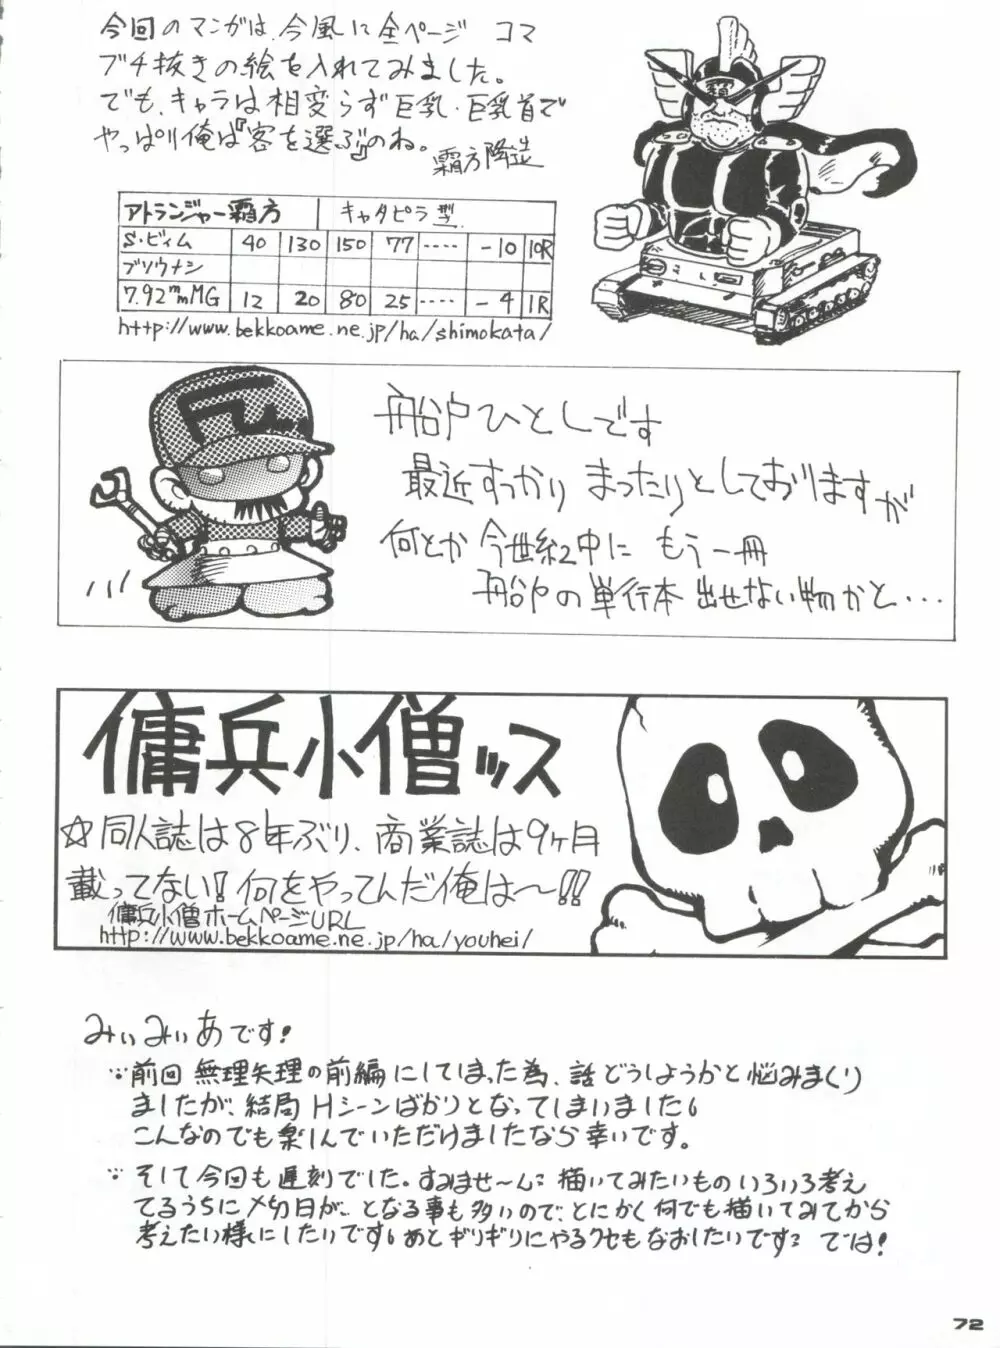 今回のマンガは、今風に全ページ コマ
ブチ抜きの絵を入れてみました。
でも、キャラは相変らず巨乳・巨乳首で
やっぱり俺は『客を選ぶ』のね。
霜方降造
覇
アトランジャー霜方 キャタピラ型
S・ビィム 40 130 150 77 ‥‥ -10 10R
ブソウナシ
7.92mmMG 12 20 80 25 ‥‥ -4 1R
http://www.bekkoame.ne.jp/ha/shimokata/
船戸ひとしです
最近すっかり まったりとしておりますが
何とか 今世紀中に もう一冊
船戸の単行本 出せない物かと・・・
傭兵小僧ッス
☆同人誌は8年ぶり、商業誌は9ヶ月
載ってない!何をやってんだ俺は〜!!
傭兵小僧ホームページURL
http://www.bekkoame.ne.jp/ha/youhei/
みぃみぃあです!
∵前回 無理矢理の前編にしてしまった為、話どうしようかと悩みまくり
ましたが、結局 Hシーンばかりとなってしまいました。
こんなのでも楽しんでいただけましたなら幸いです。
∵そして今回も遅刻でした。すみませ〜ん: 描いてみたいものいろいろ考え
てるうちに〆切日が、となる事も多いので、とにかく何でも描いてみてから
考えたい様にしたいです。あとギリギリにやるクセもなおしたいです: では!
72